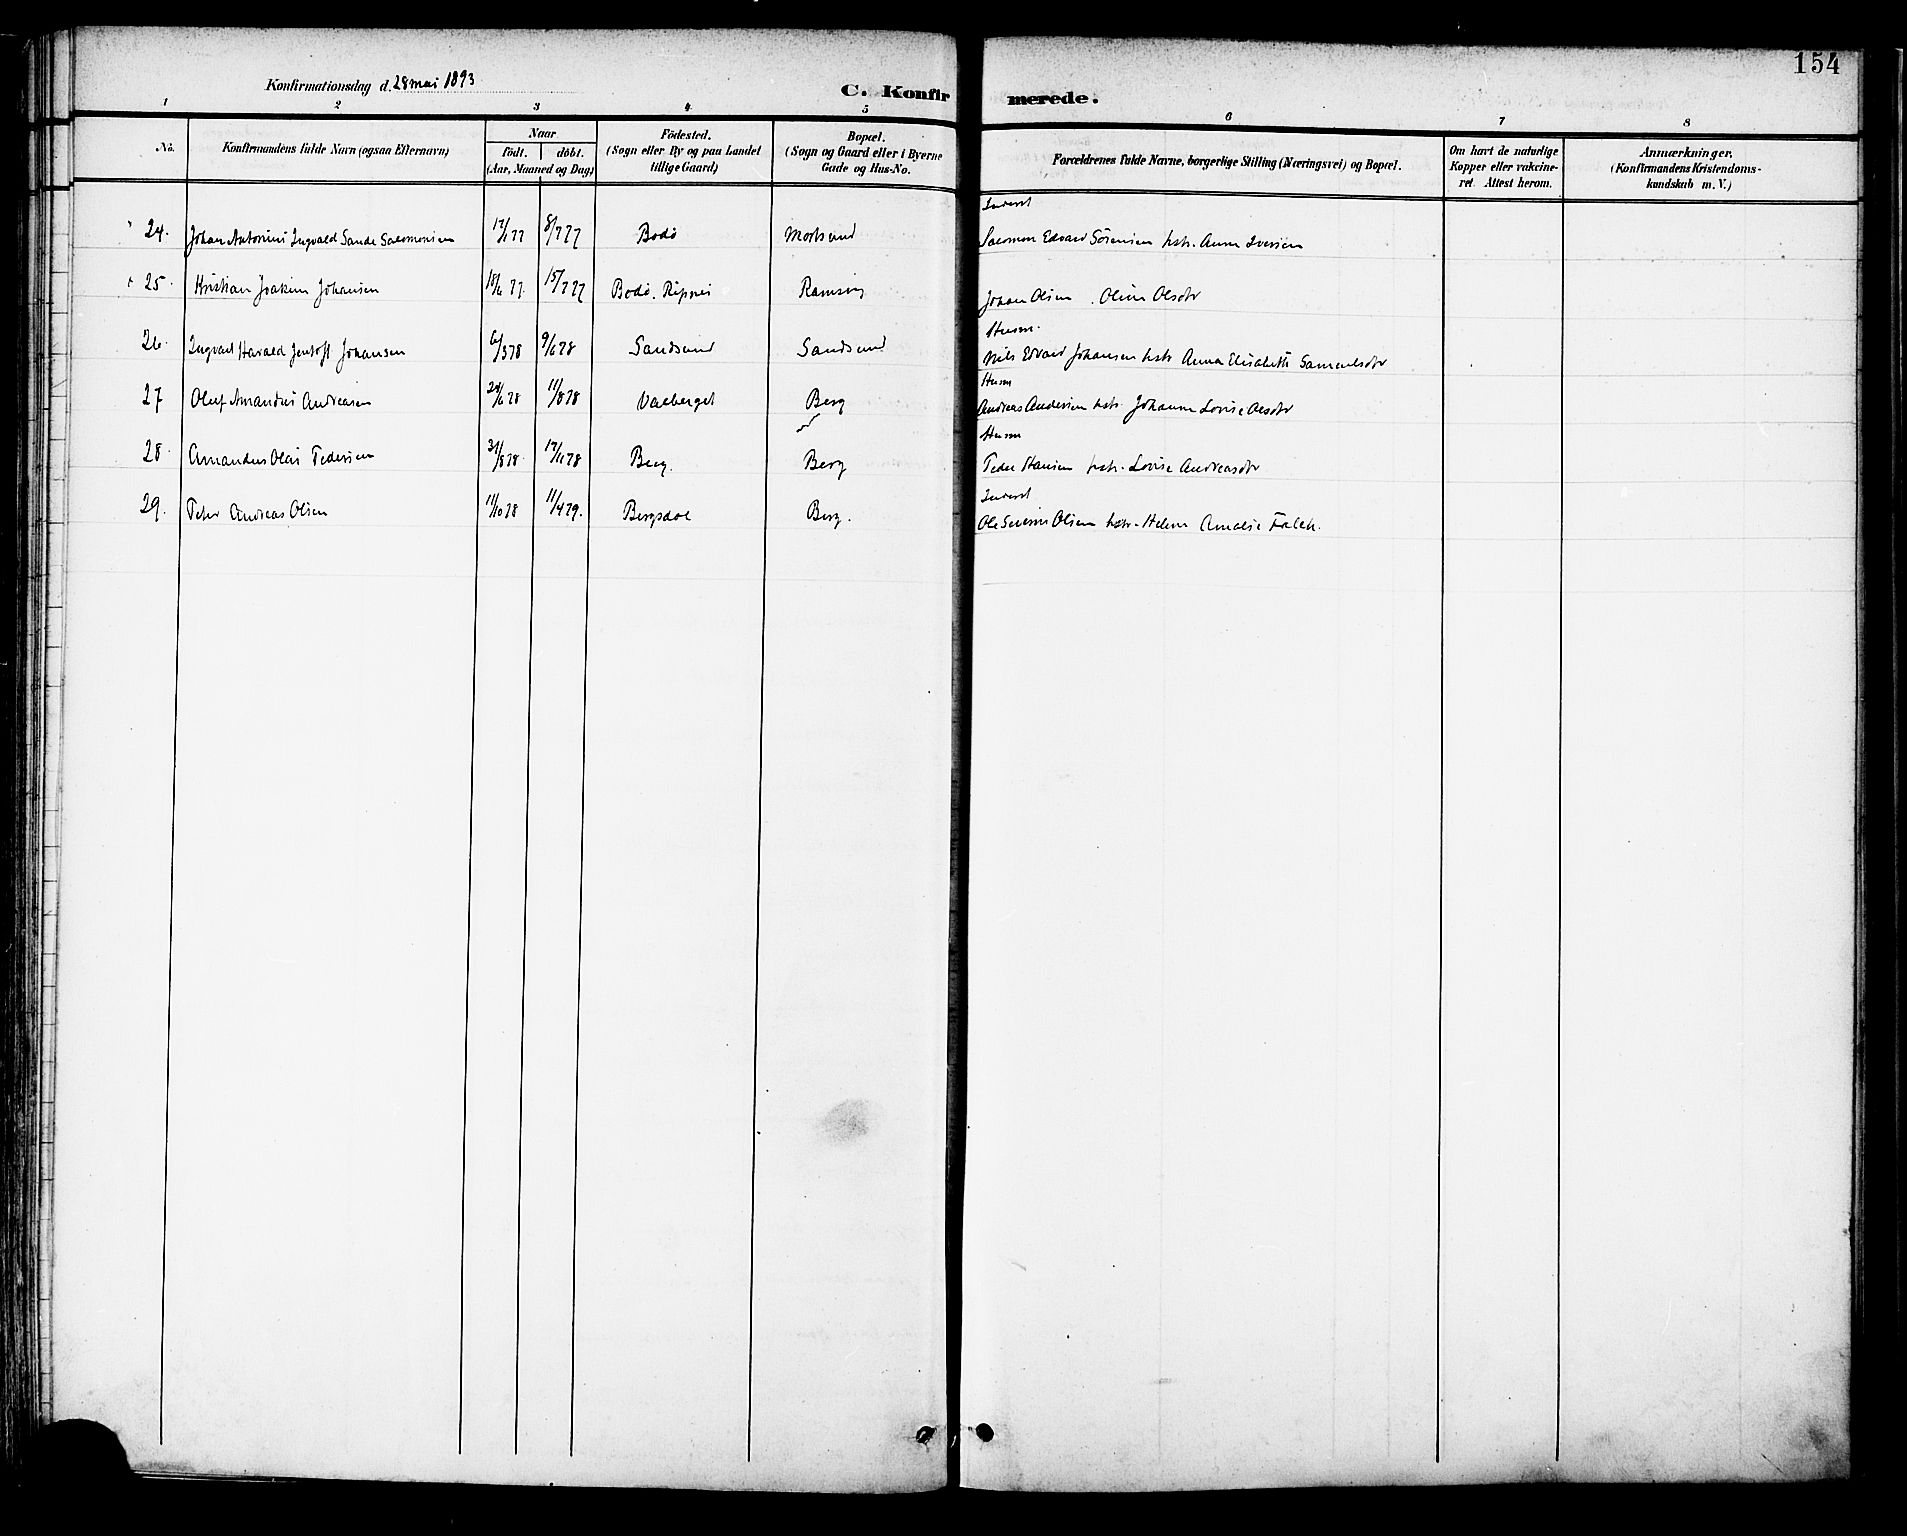 154
Konfirmationsdag d. 28 mai 1893
C. Konfirmerede.
1 2 3 4 5 6 7 8
No. Konfirmandens fulde Navn (ogsaa Efternavn) Naar födt. döbt. (Aar, Maaned og Dag) Födested. (Sogn eller By og paa Landet tillige Gaard) Bopæl. (Sogn og Gaard eller i Byerne Gade og Hus-No. Forældrenes fulde Navne, borgerlige Stilling (Næringsvei) og Bopæl. Om havt de naturlige Kopper eller vakcineret. Attest herom. Anmærkninger. (Konfirmandens Kristendomskundskab m. V.)
Inderst
24. Johan Antonius Ingvald Sande Salomonsen 8/7 77 Bodö Mortsund Salomon Edvard Sörensen hstr. Anna Iversen
25. Kristian Joakim Johansen 15/7 77 Bodö. Ripnes Ramsvig Johan Olsen . Oline Olsdtr
Husm.
26. Ingvald Harald Jentoft Johansen 6/3 78 9/6 78 Sandsund Sandsund Nils Edvard Johansen hstr Anna Elisabeth Samuelsdtr
Husm
27 Oluf Amandus Andreasen 24/6 78 11/8 78 Valberget Berg Andreas Andersen hstr. Johanna Lovise Olsdtr
Husm
28. Amandus Olai Pedersen 31/8 78. 17/11 78 Berg. Berg Peder Hansen hstr. Lovise Andreasdtr
Inderst
29. Peter Andreas Olsen 11/10 78 11/4 79. Bergsdal Berg. Ole Severin Olsen hstr. Helene Amalie Falch.